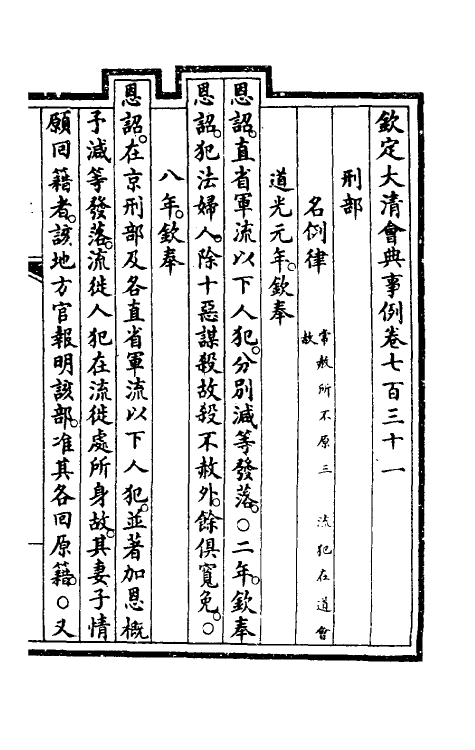 欽定大清會典事例卷七百三十一
刑部
名例律 常赦所不原三 流犯在道會赦
道光元年。欽奉
恩詔。直省軍流以下人犯。分別減等發落。○二年。欽奉
恩詔。犯法婦人。除十惡謀殺故殺不赦外。餘俱寬免。○
八年。欽奉
恩詔。在京刑部及各直省軍流以下人犯。並著加恩概
予減等發落。流徙人犯在流徙處所身故。其妻子情
願回籍者。該地方官報明該部。准其各回原籍。○又